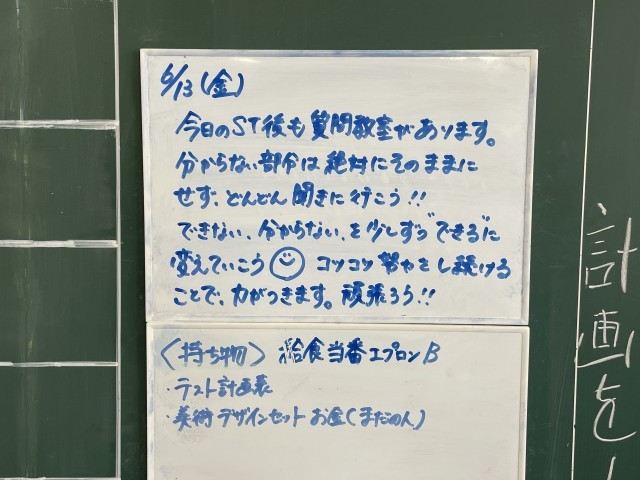 6/13(金)
今日のST後も質問教室があります。
分からない部分は絶対にそのままに
せず、どんどん聞きに行こう!!
できない、分からない、を少しずつ"できる"に
変えていこう コツコツ努力をし続ける
ことで、力がつきます。頑張ろう!!
〈持ち物〉 給食当番エプロンB
・テスト計画表
・美術デザインセットお金(まだの人)
計画を